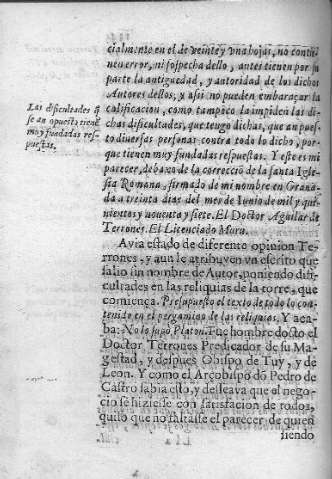 cialmente en el de veinte y vna hojas, no conti-
nen error, ni sospecha dello, antes tienen por su
parte la antiguedad, y autoridad de los dichos
Autores dellos, y assi no pueden embaraçar la
calificacion, como tampoco la impiden las di-
chas dificultades, que tengo dichas, que an pues-
to diuersas personas contra todo lo dicho, por-
que tienen muy fundadas respuestas. Y este es mi
parecer, debaxo de la correcciõ de la santa Igle-
sia Romana, firmado de mi nombre en Grana-
da a treinta dias del mer de Iunio de mil y qui-
nientos y nouenta y siete. El Doctor Aguilar de
Terrones. El Licenciado Muru.
Las dificultades q̃
se an opuesto tienẽ
muy fundadas res-
puestas.
Avia estado de diferente opinion Te-
rrones, y aun le atribuyen vn escrito que
salio sin nombre de Autor, poniendo difi-
cultades en las reliquias de la torre, que
comiença. Presupuesto el texto de todo lo con-
tenido en el pergamino de las reliquias. Y aca-
ba: No lo supo Platon. Fue hombre docto el
Doctor Terrones Predicador de su Ma-
gestad, y despues Obispo de Tuy, y de
Leon. Y como el Arçobispo dõ Pedro de
Castro sabia esto, y desseava que el nego-
cio se hiziesse con satisfacion de todos,
quiso que no faltasse el parecer de quien
siendo